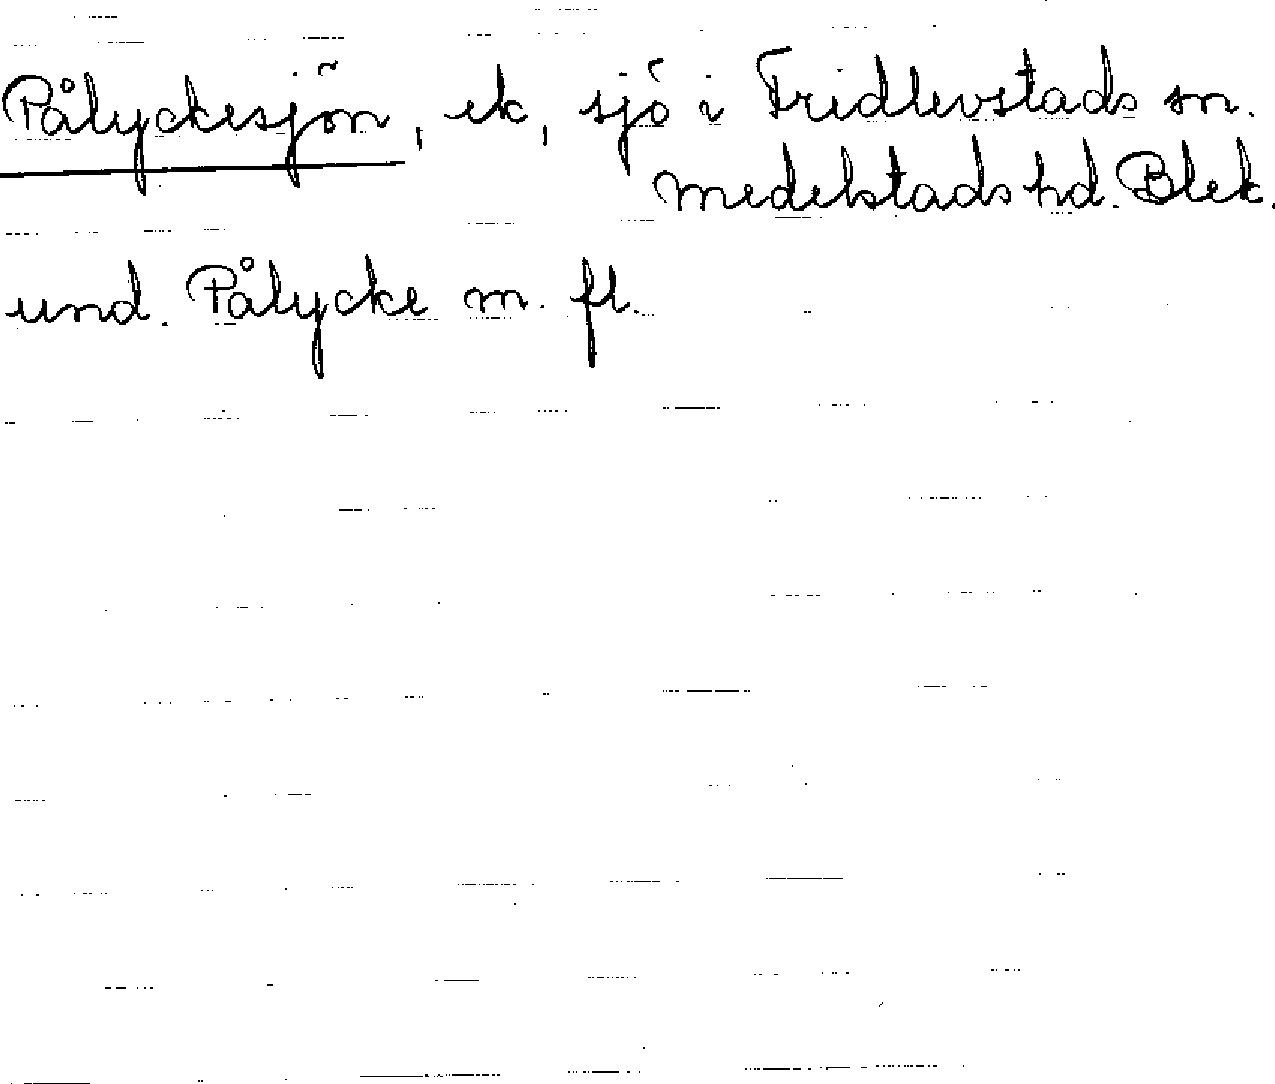 Pålyckesjön, ek, sjö i Fridlevstads sn.
Medelstads hd. Blek.
und. Pålycke m. fl.